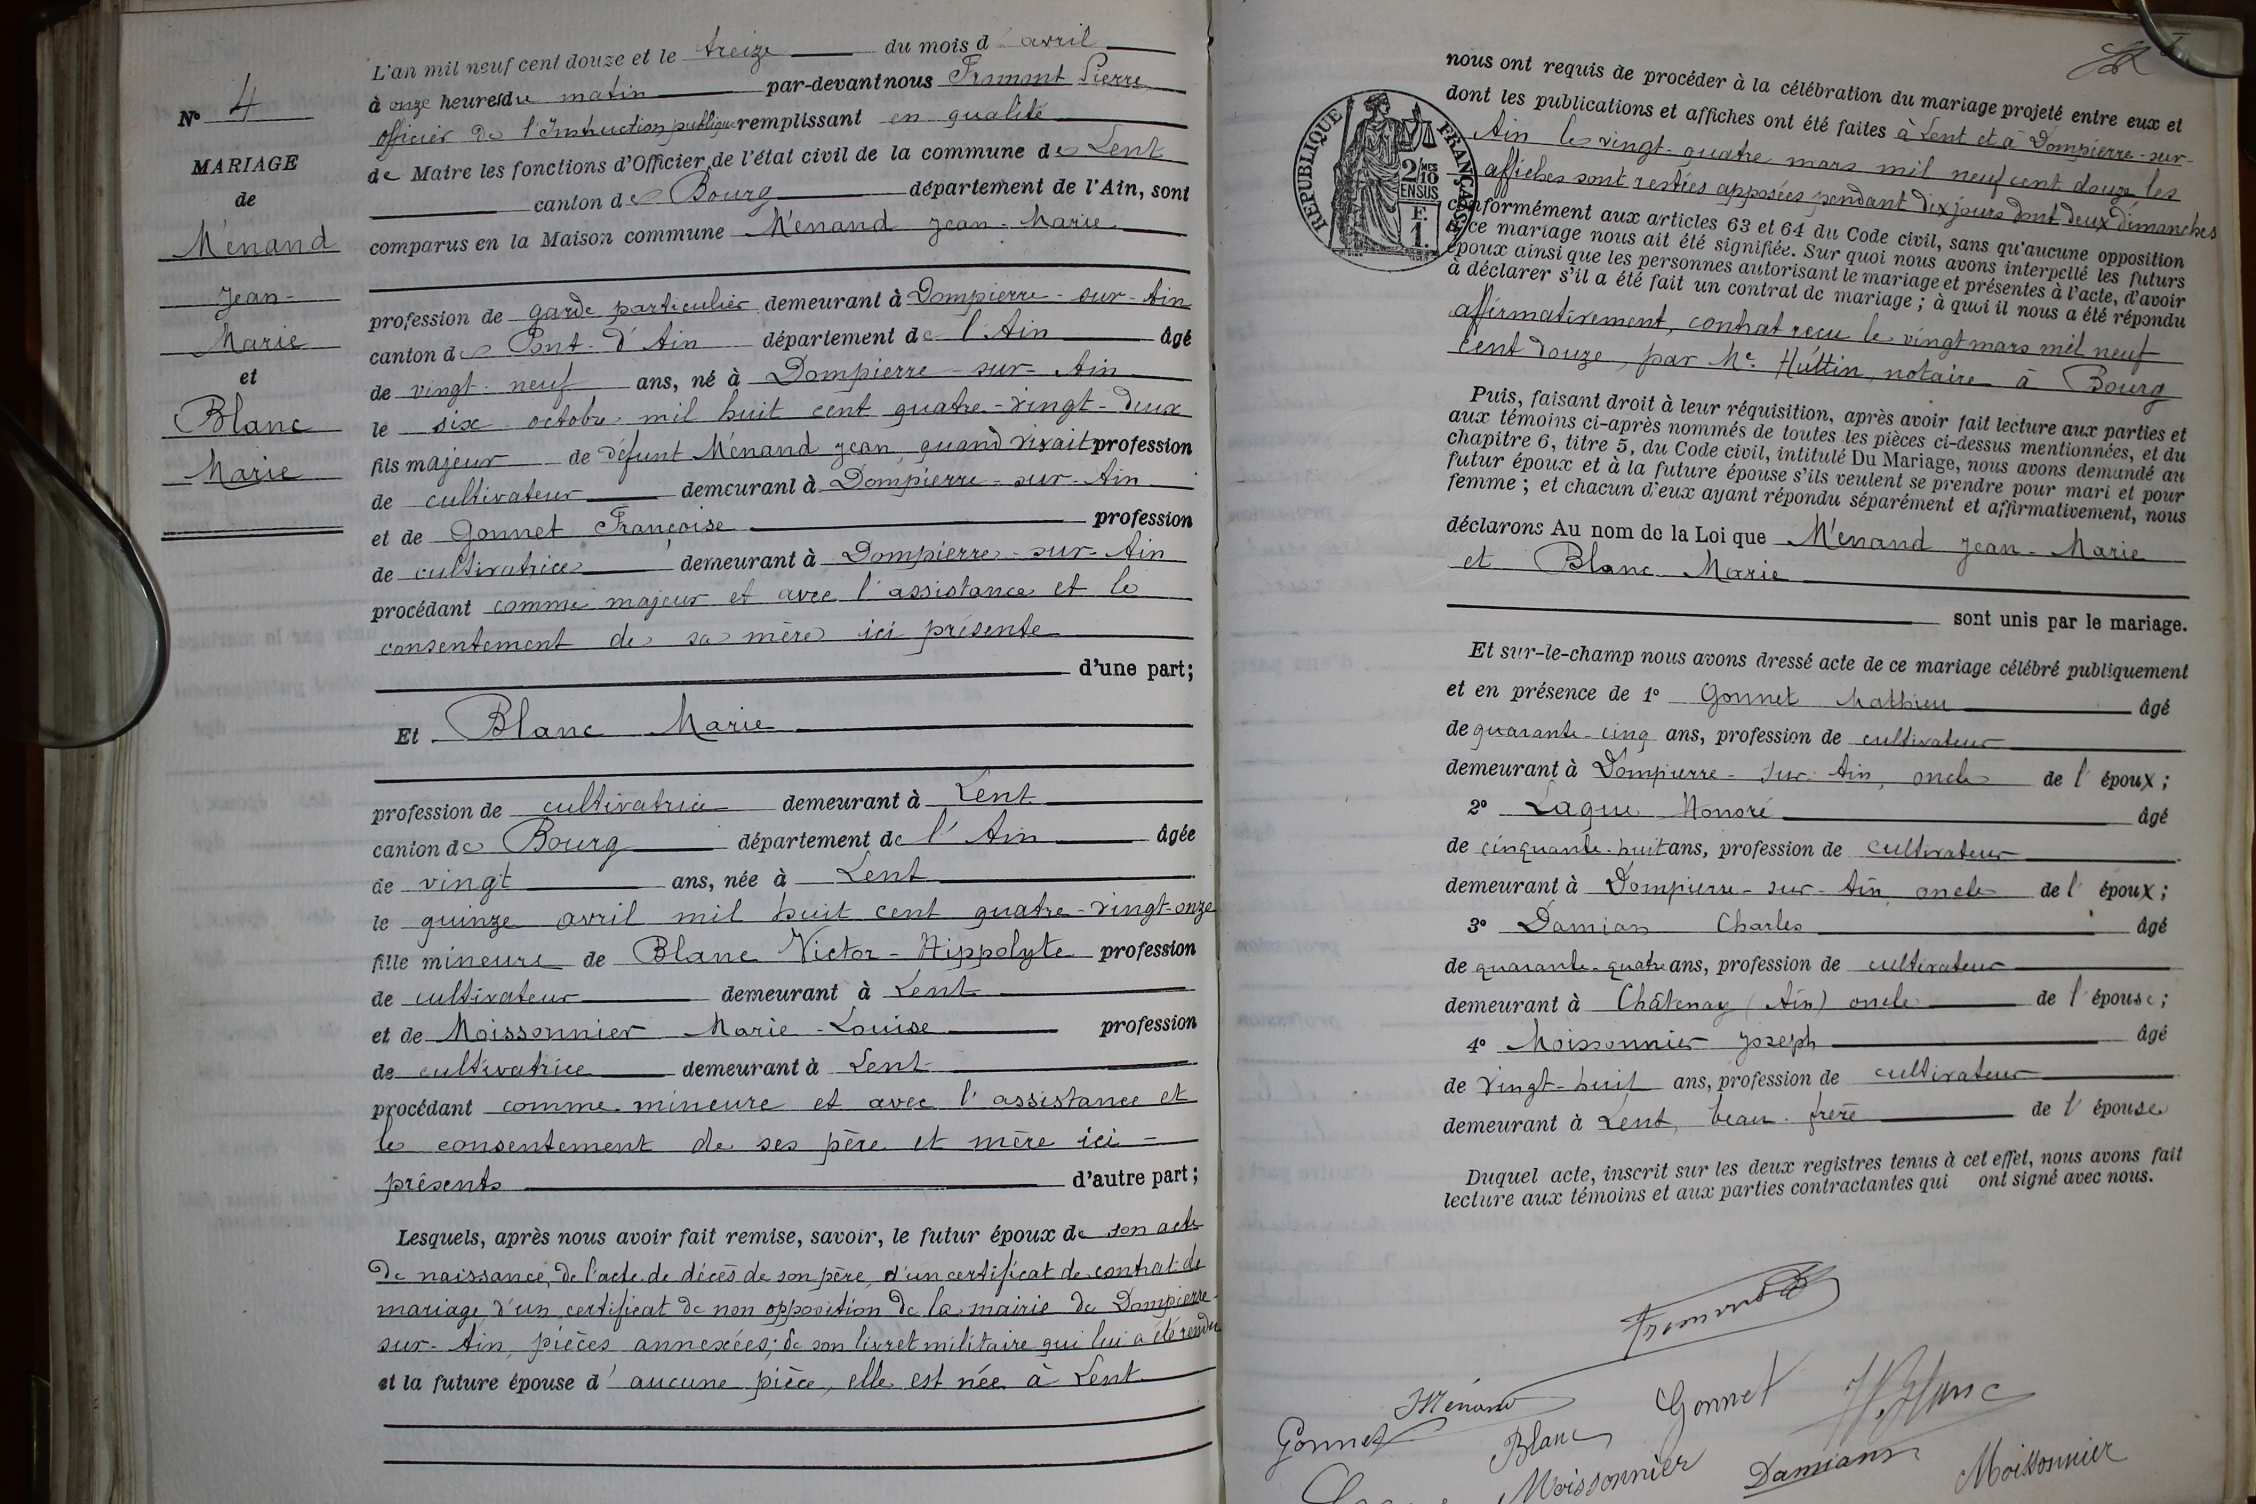 N° 4
MARIAGE
de
Ménand
Jean-
Marie
et
Blanc
Marie
L'an mil neuf cent douze et le treize du mois d' avril
à onze heures du matin par-devant nous Fromont Pierre
officier de l'Instruction publique remplissant en qualité
de Maire les fonctions d'Officier de l'état civil de la commune de Lent
canton de Bourg département de l'Ain, sont
comparus en la Maison commune Ménand Jean-Marie
profession de garde particulier demeurant à Dompierre-sur-Ain
canton de Pont-d'Ain département de l'Ain âgé
de vingt-neuf ans, né à Dompierre-sur-Ain
le six octobre mil huit cent quatre-vingt-deux
fils majeur de défunt Ménand Jean, quand vivait profession
de cultivateur demeurant à Dompierre-sur-Ain
et de Gonnet Françoise profession
de cultivatrice demeurant à Dompierre-sur-Ain
procédant comme majeur et avec l'assistance et le
consentement de sa mère ici présente
d'une part;
Et Blanc Marie
profession de cultivatrice demeurant à Lent
canton de Bourg département de l'Ain âgée
de vingt ans, née à Lent
le quinze avril mil huit cent quatre-vingt-onze
fille mineure de Blanc Victor-Hippolyte profession
de cultivateur demeurant à Lent
et de Moissonnier Marie-Louise profession
de cultivatrice demeurant à Lent
procédant comme mineure et avec l'assistance et
le consentement de ses père et mère ici-
présents d'autre part;
Lesquels, après nous avoir fait remise, savoir, le futur époux de son acte
de naissance, de l'acte de décès de son père, d'un certificat de contrat de
mariage, d'un certificat de non opposition de la mairie de Dompierre-
sur-Ain, pièces annexées; de son livret militaire qui lui a été rendu
et la future épouse d'aucune pièce, elle est née à Lent
nous ont requis de procéder à la célébration du mariage projeté entre eux et
dont les publications et affiches ont été faites à Lent et à Dompierre-sur-
Ain les vingt-quatre mars mil neuf cent douze les
affiches sont restées apposées pendant dix jours dont deux dimanches
conformément aux articles 63 et 64 du Code civil, sans qu'aucune opposition
à ce mariage nous ait été signifiée. Sur quoi nous avons interpellé les futurs
époux ainsi que les personnes autorisant le mariage et présentes à l'acte, d'avoir
à déclarer s'il a été fait un contrat de mariage; à quoi il nous a été répondu
affirmativement, contrat reçu le vingt mars mil neuf
cent douze, par Me Huttin, notaire à Bourg
RÉPUBLIQUE FRANÇAISE
2/10
EN SUS
F.
1.
Puis, faisant droit à leur réquisition, après avoir fait lecture aux parties et
aux témoins ci-après nommés de toutes les pièces ci-dessus mentionnées, et du
chapitre 6, titre 5, du Code civil, intitulé Du Mariage, nous avons demandé au
futur époux et à la future épouse s'ils veulent se prendre pour mari et pour
femme; et chacun d'eux ayant répondu séparément et affirmativement, nous
déclarons Au nom de la Loi que Ménand Jean-Marie
et Blanc Marie
sont unis par le mariage.
Et sur-le-champ nous avons dressé acte de ce mariage célébré publiquement
et en présence de 1° Gonnet Mathieu âgé
de quarante-cinq ans, profession de cultivateur
demeurant à Dompierre-sur-Ain, oncle de l'époux;
2° Lague Honoré âgé
de cinquante-huit ans, profession de cultivateur
demeurant à Dompierre-sur-Ain, oncle de l'époux;
3° Damian Charles âgé
de quarante-quatre ans, profession de cultivateur
demeurant à Châtenay (Ain) oncle de l'épouse;
4° Moissonnier Joseph âgé
de vingt-huit ans, profession de cultivateur
demeurant à Lent, beau-frère de l'épouse
Duquel acte, inscrit sur les deux registres tenus à cet effet, nous avons fait
lecture aux témoins et aux parties contractantes qui ont signé avec nous.
Fromont
Ménand
Gonnet
Blanc
Gonnet
H. Blanc
Moissonnier
Damians
Moissonnier